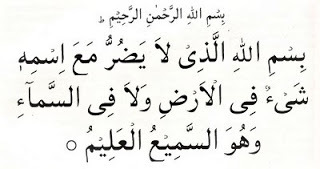 بِسْمِ اللهِ الرَّحْمٰنِ الرَّحِيْمِ ط
بِسْمِ اللهِ الَّذِىْ لَا يَضُرُّ مَعَ اسْمِهٖ
شَىْءٌ فِى الْاَرْضِ وَلَا فِى السَّمَآءِ
وَهُوَ السَّمِيْعُ الْعَلِيْمُ ○